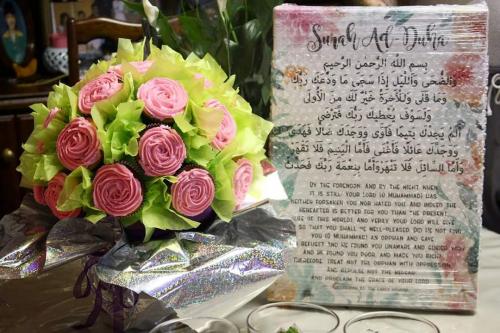 Surah Ad Duha
بسم الله الرحمن الرحيم
والضحى والليل إذا سجى ما ودعك ربك
وما قلى وللآخرة خير لك من الأولى
ولسوف يعطيك ربك فترضى
ألم يجدك يتيما فآوى ووجدك ضالا فهدى
ووجدك عائلا فأغنى فأما اليتيم فلا تقهر
وأما السائل فلا تنهر وأما بنعمة ربك فحدث
BY THE FORENOON AND BY THE NIGHT WHEN
IT IS STILL, YOUR LORD (O MUHAMMAD) HAS
NEITHER FORSAKEN YOU NOR HATED YOU AND INDEED THE
HEREAFTER IS BETTER FOR YOU THAN THE PRESENT
OF THIS WORLD) AND VERILY YOUR LORD WILL GIVE
SO THAT YOU SHALL BE WELL-PLEASED DID HE NOT FIND
YOU (O MUHAMMAD) AN ORPHAN AND GAVE
REFUGE? AND HE FOUND YOU UNAWARE AND GUIDED
AND HE FOUND YOU POOR, AND MADE YOU RICH
THEREFORE TREAT NOT THE ORPHAN WITH OPPRESSION
AND REPULSE NOT THE BEGGAR
AND PROCLAIM THE GRACE OF YOUR LORD